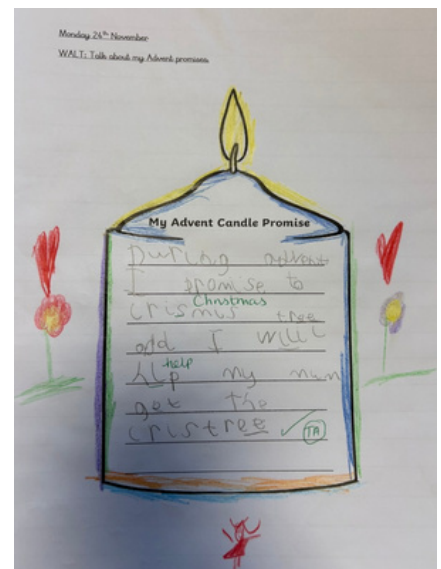 Monday 26th November
WALT: Talk about my Advent promises.
My Advent Candle Promise
During advent
I promise to
Christmas
crismus tree
and I will
help
hlp my mum
get the
cristree TA